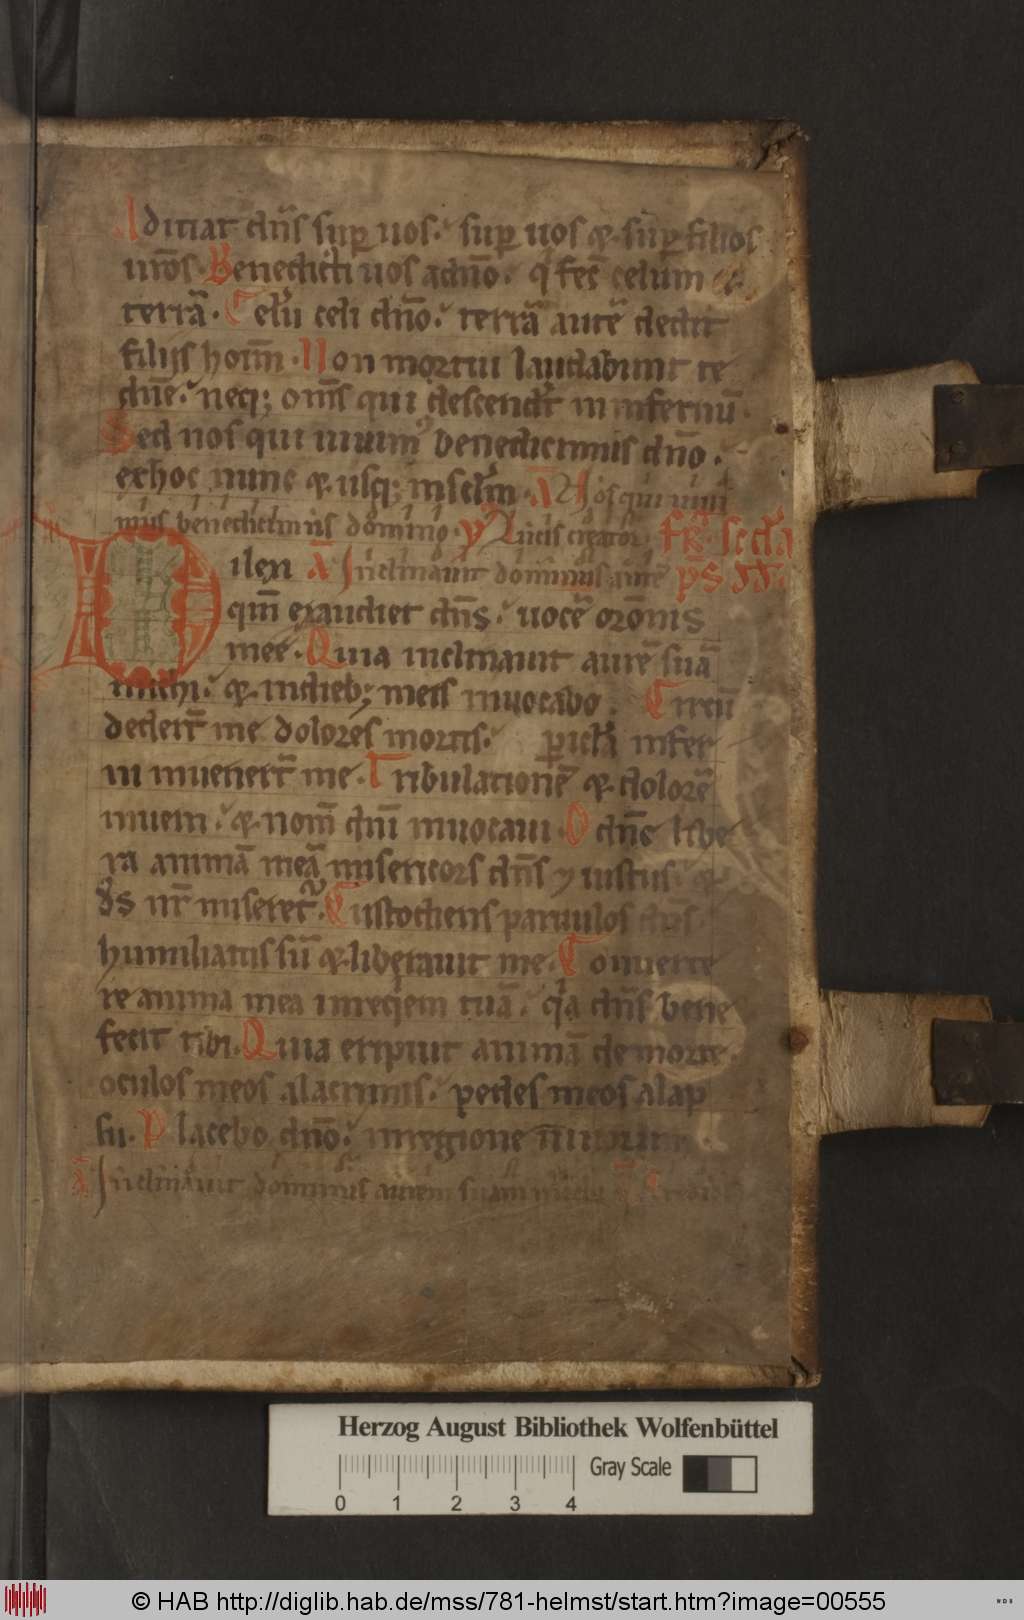 Adiciat dn̄s sup̲ uos. sup̲ uos &. sup̲ filios
uros. Benedicti uos adn̄o. q̇ fec̄ celum &
terrā. Celū celi dn̄o. terrā autē dedit
filiis hoim̄. Non mortui laudabunt te
dn̄e. neq; om̄s qui descendt̄ in infernū.
Sed nos qui uiuimꝰ benedicimus dn̄o.
exhoc nunc &. usq; insclm̄. Ā Nos qui uiui
mus benedicimus domino. Lucis creator. fr̄. scda
ilexi Ā Inclinauit dominus aurē ps̄ dd.
qm̄ exaudiet dn̄s. uocē orōnis
mee. Quia inclinauit aurē suā
michi. &. indieb; meis inuocabo. Circū
dedert̄ me dolores mortis. ꝑicła infer
ni inuenert̄ me. Tribulationē &. dolorē
inueni. &. nom̄ dn̄i inuocaui. O dn̄e libe
ra animā meā misericors dn̄s & iustus. &
ds̄ nr̄ miseret̄. Custodiens paruulos dn̄s.
humiliatus sū &. liberauit me. Conuerte
re anima mea inreq̇em tuā. q̇a dn̄s bene
fecit tibi. Quia eripuit animā demorte.
oculos meos alacrimis. pedes meos alap
su. Placebo dn̄o. inregione uiuorum.
Ā Inclinauit dominus aurem suam michi
Herzog August Bibliothek Wolfenbüttel
Gray Scale
0 1 2 3 4
© HAB http://diglib.hab.de/mss/781-helmst/start.htm?image=00555